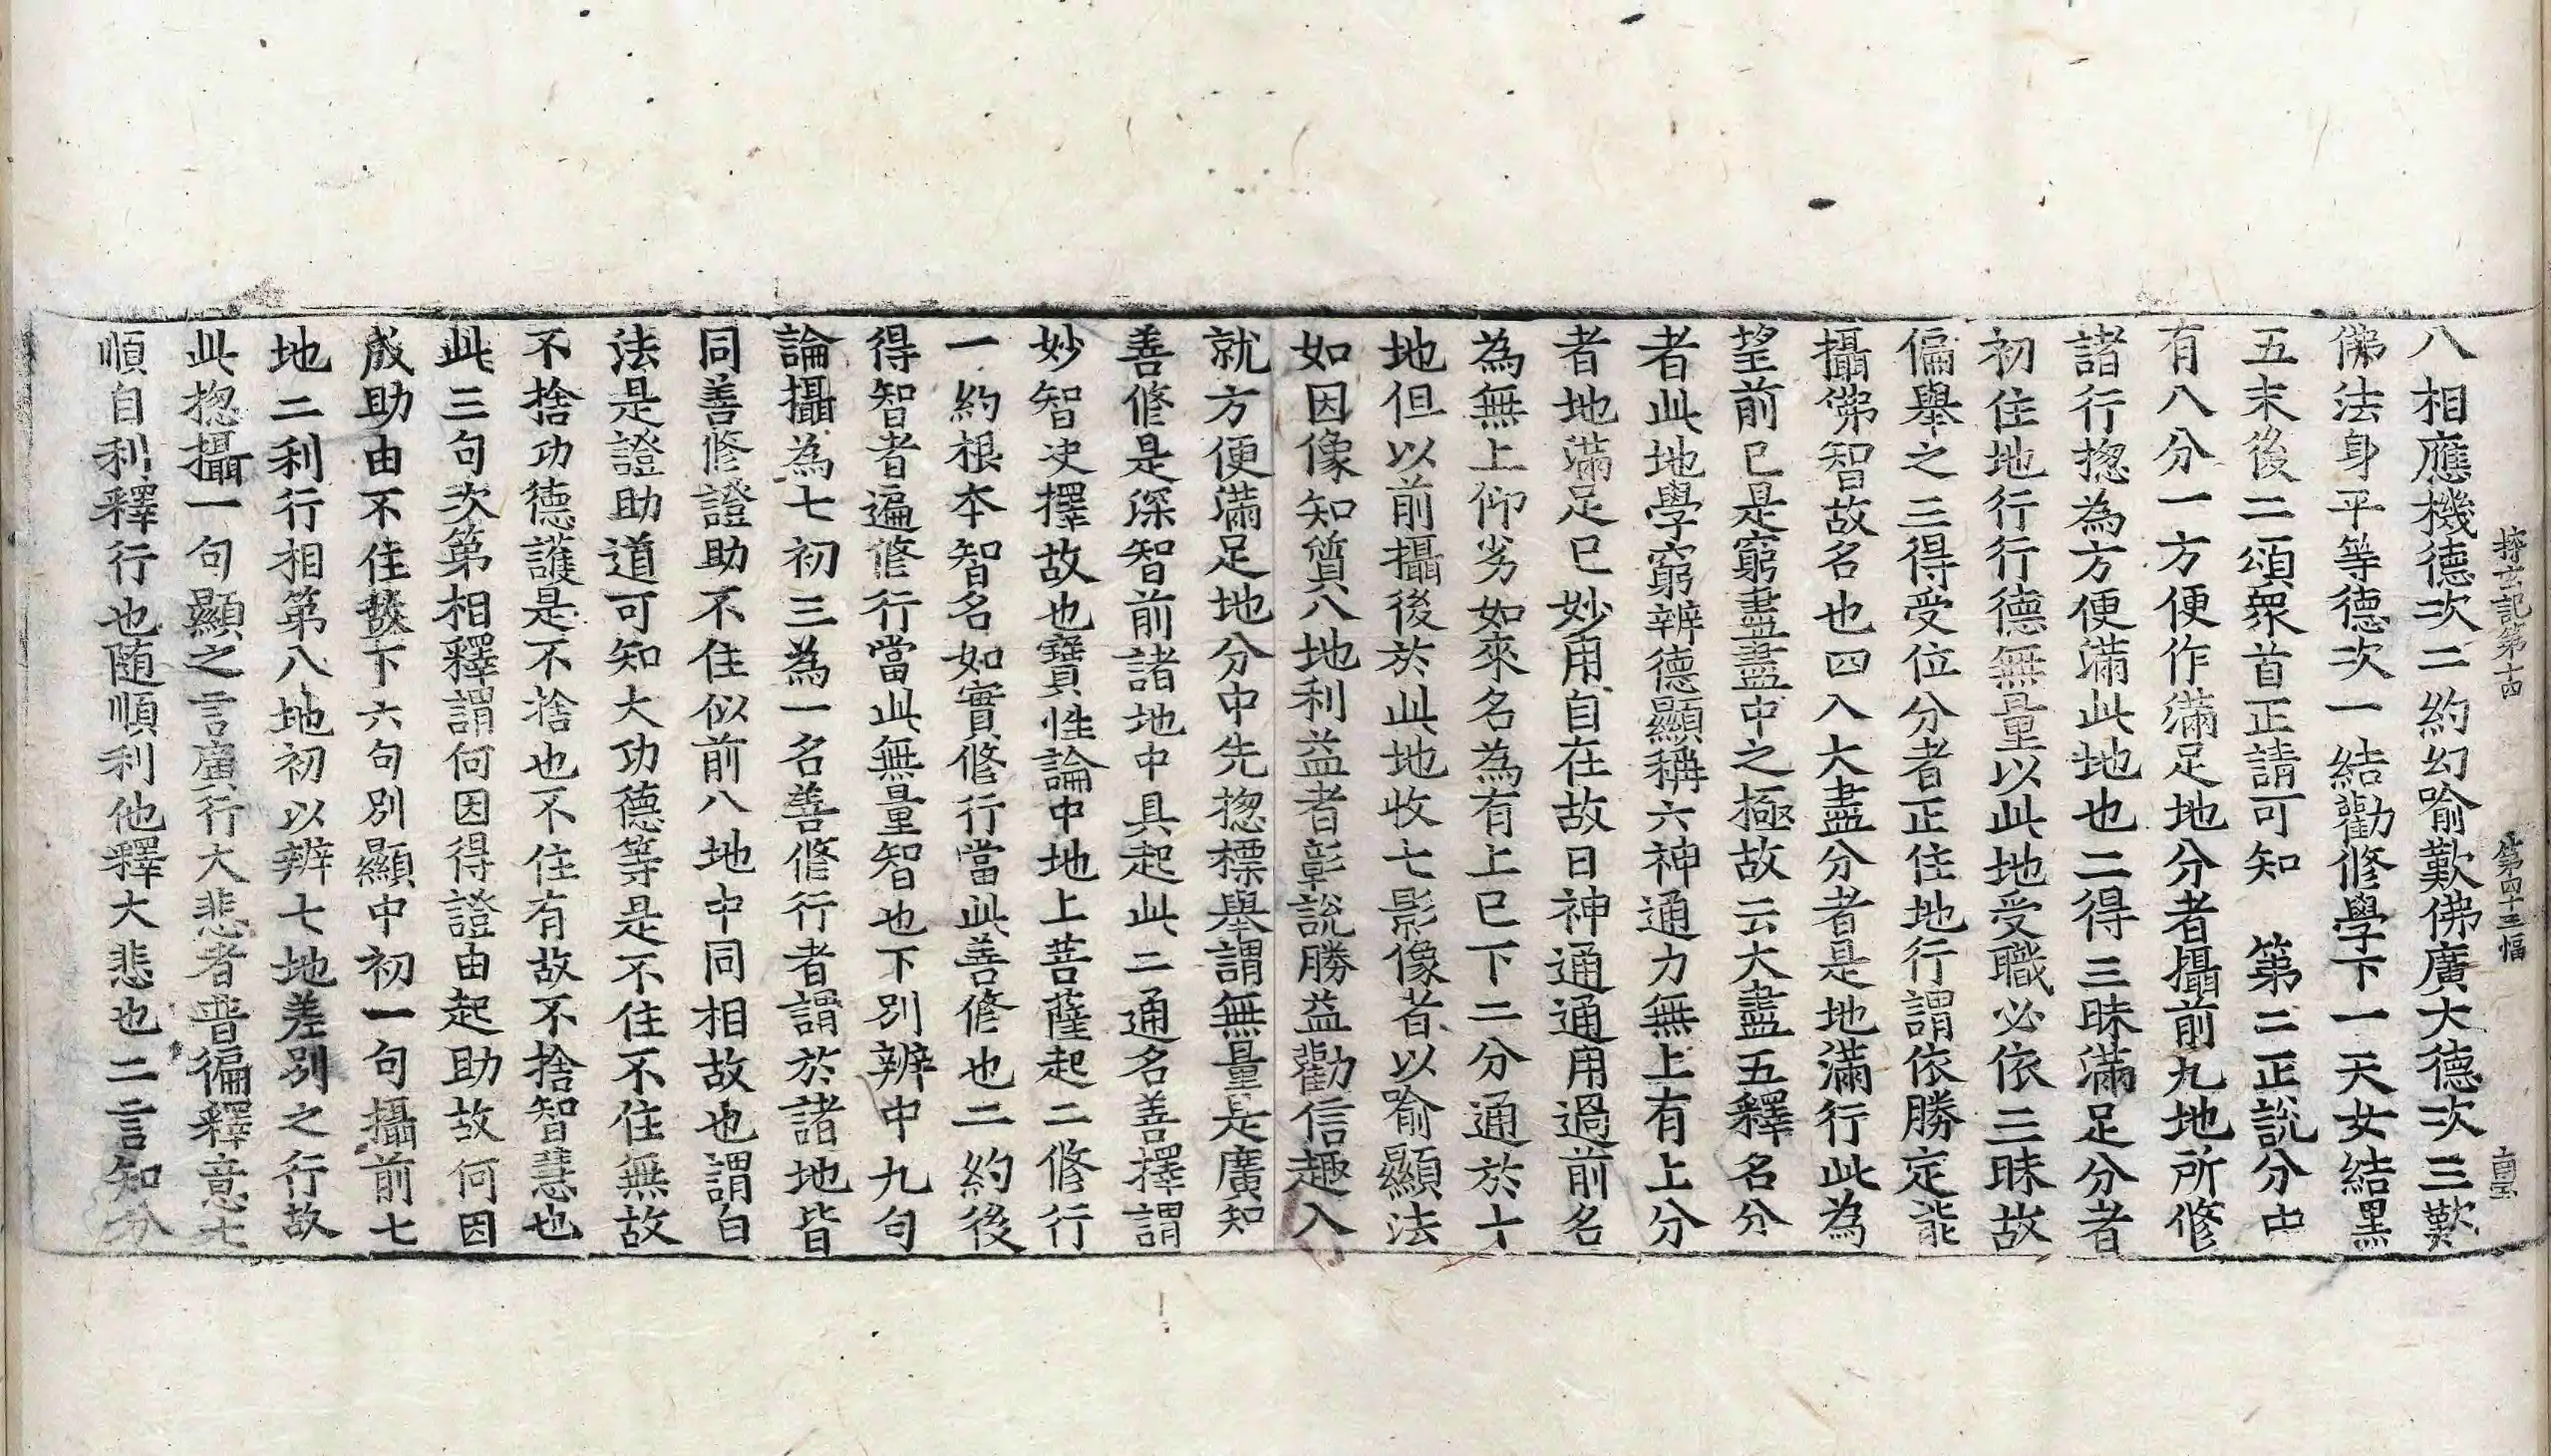 搜玄記第十四 第四十三幅
八相應機德次二約幻喻歎佛廣大德次三歎
佛法身平等德次一結勸修學下一天女結黑
五末後二頌眾首正請可知 第二正說分中
有八分一方便作滿足地分者攝前九地所修
諸行揔為方便滿此地也二得三昧滿足分者
初住地行行德無量以此地受職必依三昧故
偏舉之三得受位分者正住地行謂依勝定能
攝佛智故名也四入大盡分者是地滿行此為
望前已是窮盡盡中之極故云大盡五釋名分
者此地學窮辨德顯稱六神通力無上有上分
者地滿足已妙用自在故曰神通通用過前名
為無上仰劣如來名為有上已下二分通於十
地但以前攝後於此地收七影像者以喻顯法
如因像知質八地利益者彰說勝益勸信趣入
就方便滿足地分中先揔標舉謂無量是廣知
善修是深智前諸地中具起此二通名善擇謂
妙智決擇故也寶性論中地上菩薩起二修行
一約根本智名如實修行當此善修也二約後
得智者遍修行當此無量智也下別辨中九句
論攝為七初三為一名善修行者謂於諸地皆
同善修證助不住似前八地中同相故也謂白
法是證助道可知大功德等是不住不住無故
不捨功德護是不捨也不住有故不捨智慧也
此三句次第相釋謂何因得證由起助故何因
成助由不住故下六句別顯中初一句攝前七
地二利行相第八地初以辨七地差別之行故
此揔攝一句顯之言廣行大悲者普徧釋意七
順自利釋行也随順利他釋大悲也二言知分